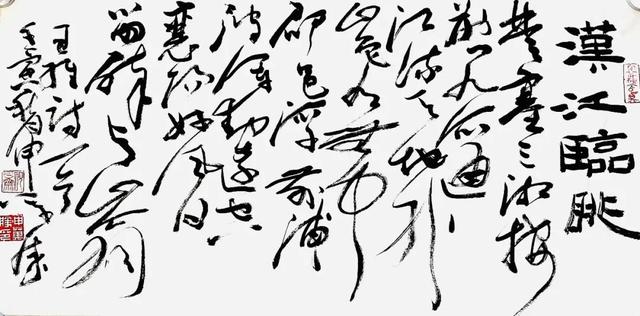 漢江臨眺
楚塞三湘接
荊門九派通
江流天地外
山色有無中
郡邑浮前浦
波瀾動遠空
襄陽好風日
留醉與山翁
王維詩一首
壬寅